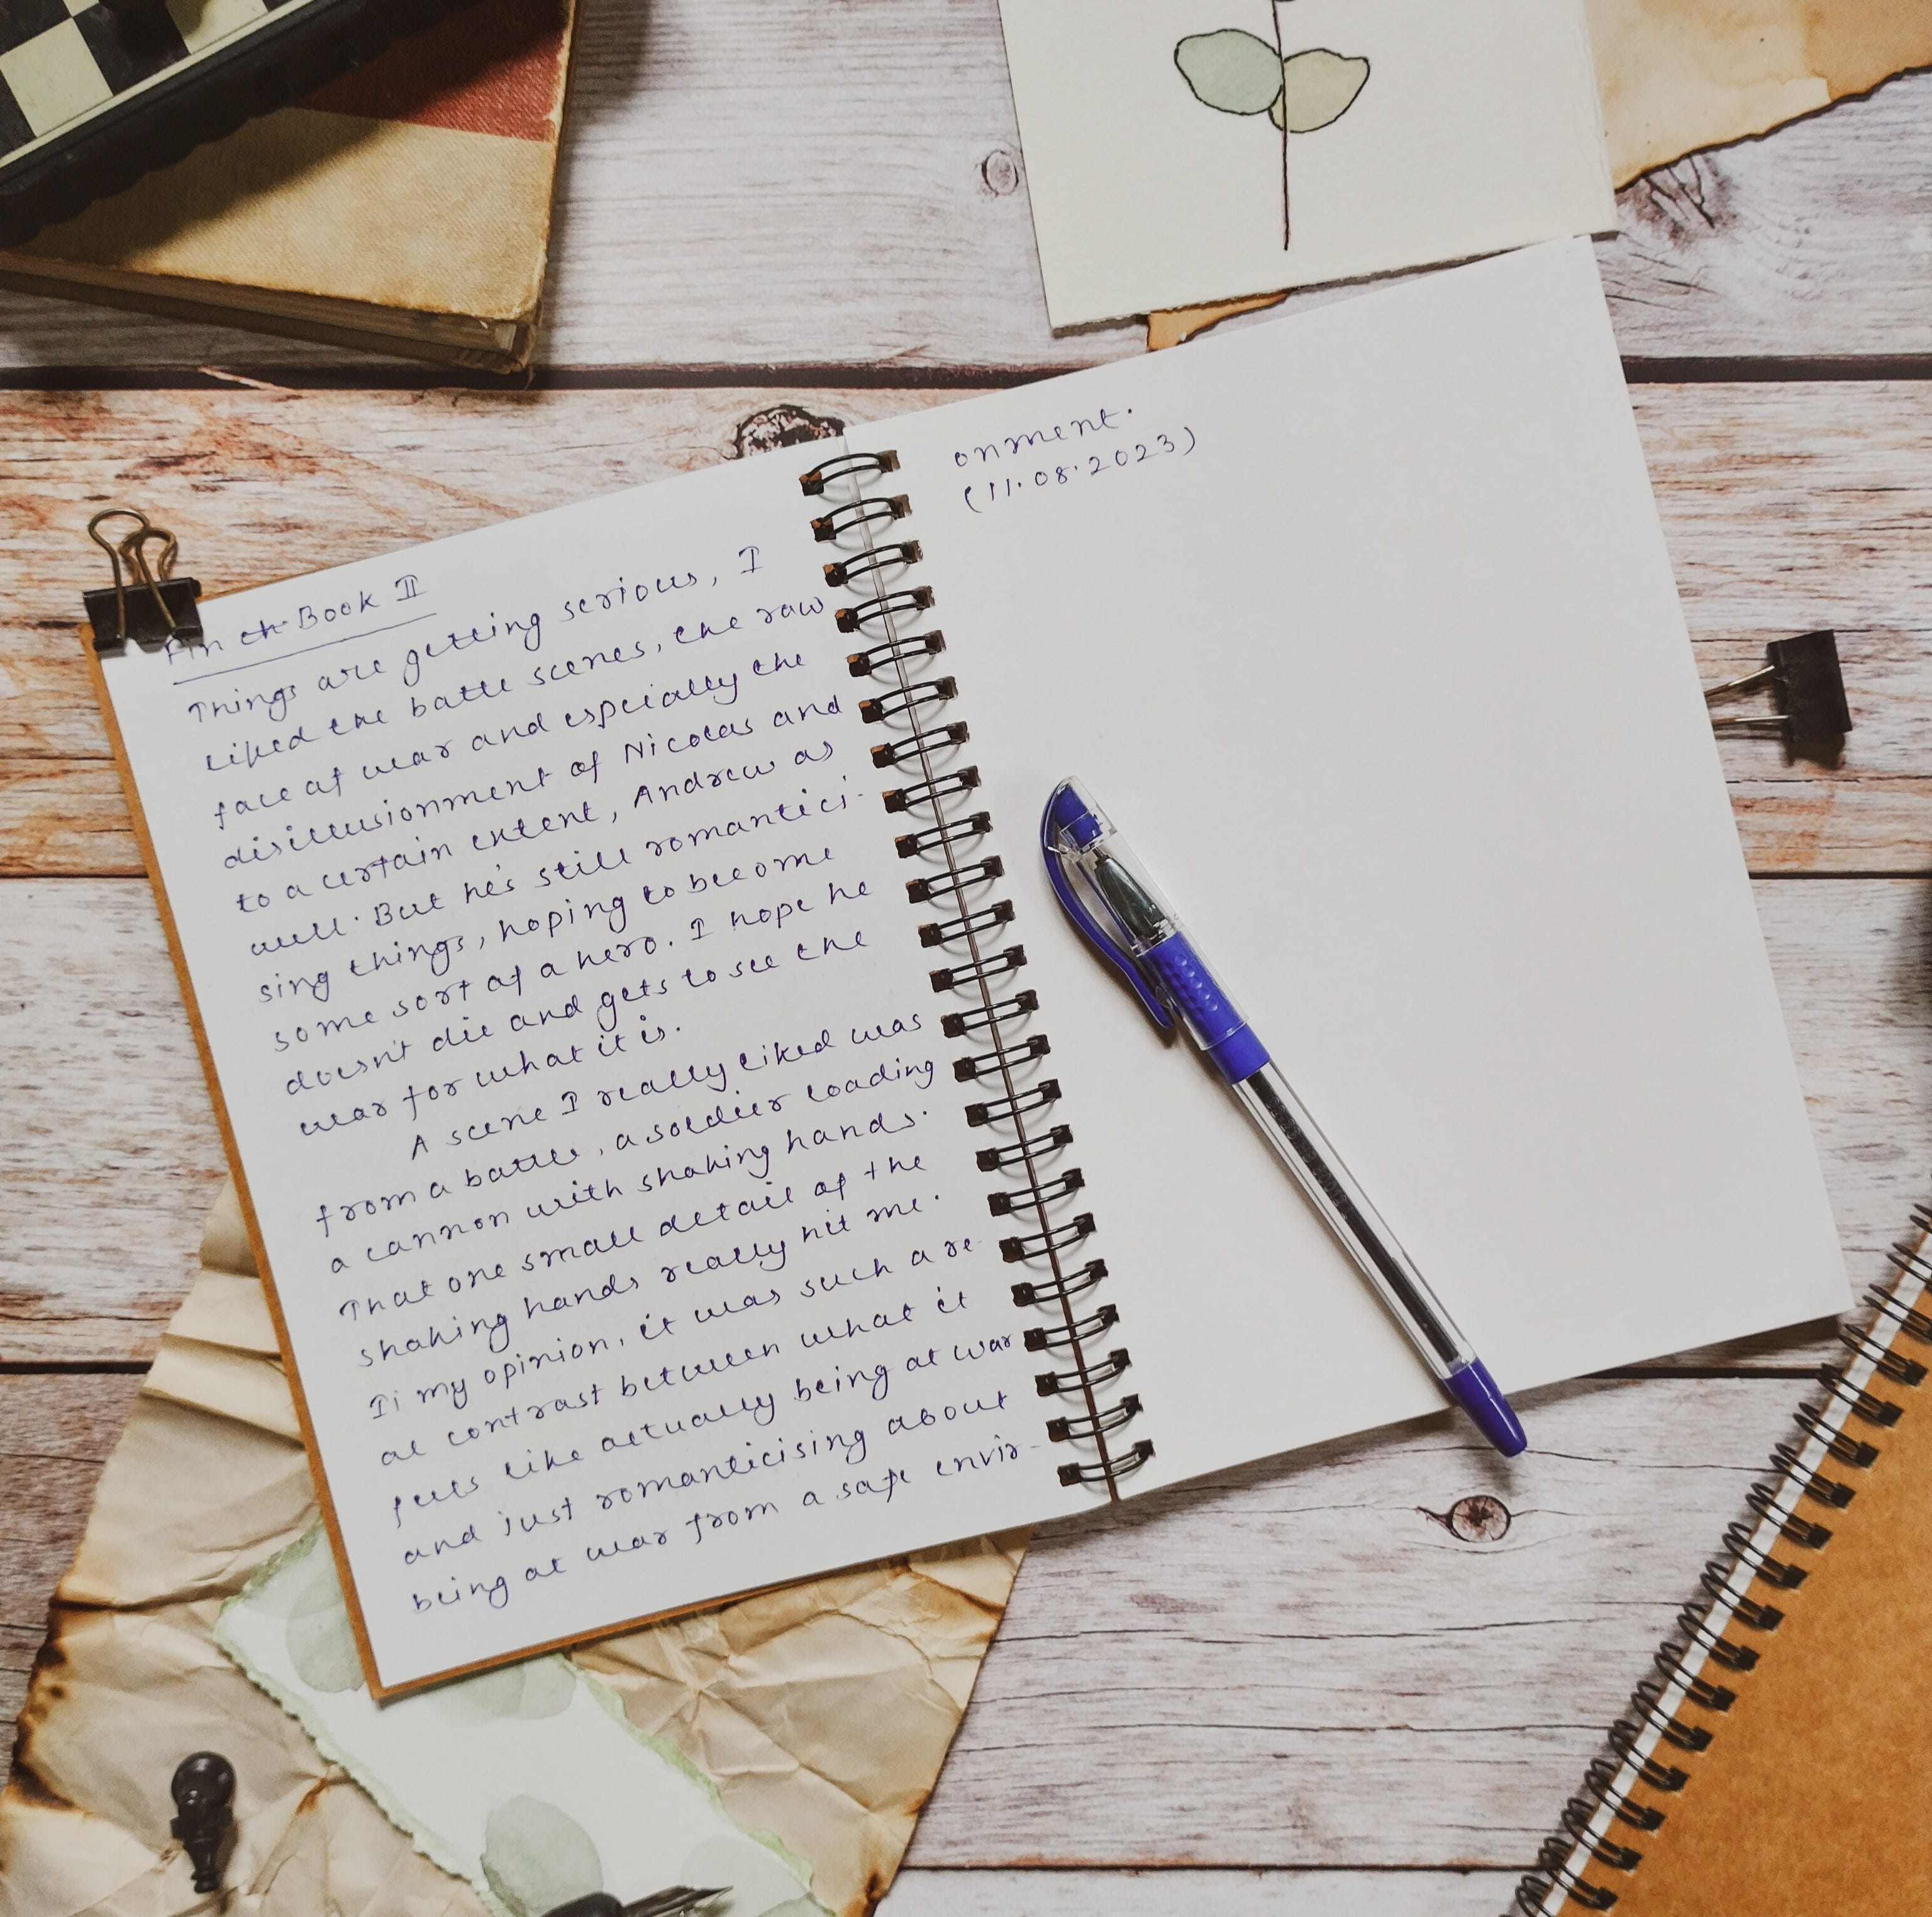 Fin ch Book II
Things are getting serious, I
liked the battle scenes, the raw
face of war and espcially the
disillusionment of Nicolas and
to a certain extent, Andrew as
well. But he's still romantici-
sing things, hoping to become
some sort of a hero. I hope he
doesn't die and gets to see the
war for what it is.
A scene I really liked was
from a battle, a soldier loading
a cannon with shaking hands.
That one small detail of the
shaking hands really hit me.
In my opinion, it was such a re-
al contrast between what it
feels like actually being at war
and just romanticising about
being at war from a safe envir-
onment.
(11.08.2023)